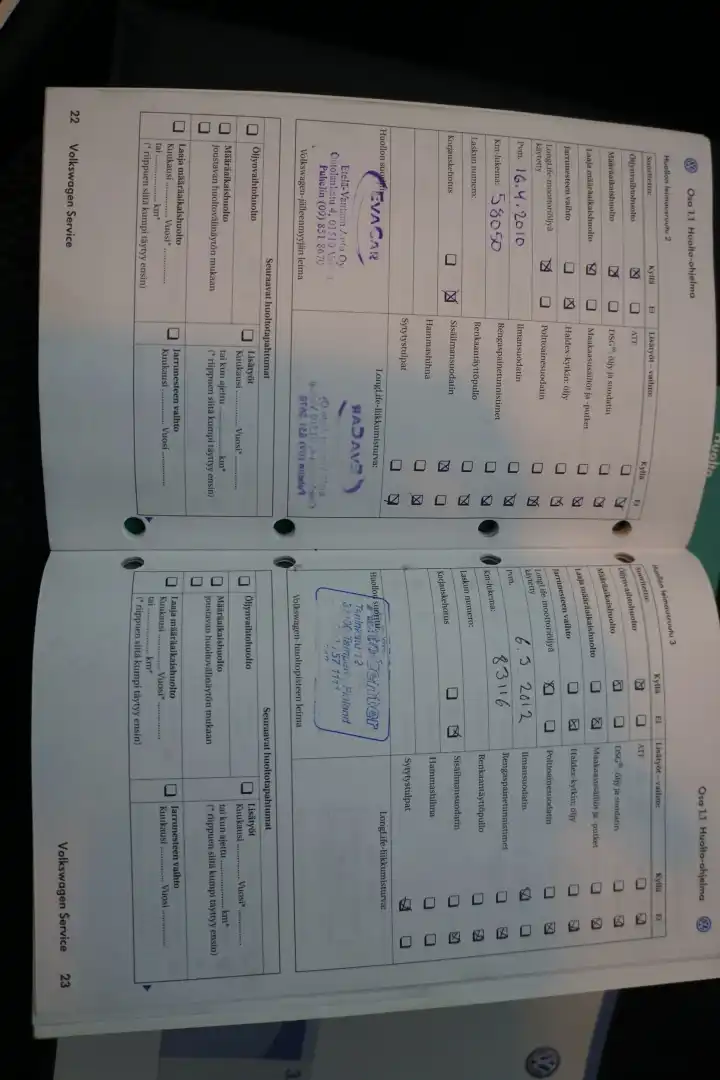 Osa 1.1 Huolto-ohjelma
Huollon leimausruutu 2
Suoritettu:
Kyllä
Ei
Öljynvaihtohuolto
Määräaikaishuolto
Laaja määräaikaishuolto
Jarrunesteen vaihto
LongLife-moottoriöljyä
käytetty
Pvm. 16.4.2010
Km-lukema: 58050
Laskun numero:
Korjauskehotus
Lisätyöt – vaihto:
Kyllä
Ei
ATF
DSG® öljy ja suodatin
Maakaasusäiliöt ja -putket
Haldex-kytkin: öljy
Polttoainesuodatin
Ilmansuodatin
Rengaspainetunnistimet
Renkaantäyttöpullo
Sisäilmansuodatin
Hammashihna
Sytytystulpat
Huollon
EVACAR
Etelä-Vantaan Auto Oy
01510
Puhelin (09) 851 8670
Volkswagen-jälleenmyyjän leima
LongLife-liikkumisturva:
EVACAR
Seuraavat huoltotapahtumat
Öljynvaihtohuolto
Määräaikaishuolto
joustavan huoltovälinäytön mukaan
Laaja määräaikaishuolto
Kuukausi Vuosi*
tai km*
(* riippuen siitä kumpi täytyy ensin)
Lisätyöt
Kuukausi Vuosi*
tai kun ajettu km*
(* riippuen siitä kumpi täytyy ensin)
Jarrunesteen vaihto
Kuukausi Vuosi
22 Volkswagen Service
Osa 1.1 Huolto-ohjelma
Huollon leimausruutu 3
Suoritettu:
Kyllä
Ei
Öljynvaihtohuolto
Määräaikaishuolto
Laaja määräaikaishuolto
Jarrunesteen vaihto
LongLife-moottoriöljyä
käytetty
Pvm. 6.3 2012
Km-lukema: 83116
Laskun numero:
Korjauskehotus
Lisätyöt – vaihto:
Kyllä
Ei
ATF
DSG® öljy ja suodatin
Maakaasusäiliöt ja -putket
Haldex-kytkin: öljy
Polttoainesuodatin
Ilmansuodatin
Rengaspainetunnistimet
Renkaantäyttöpullo
Sisäilmansuodatin
Hammashihna
Sytytystulpat
Huollon suoritti:
Center
Finland
Volkswagen-huoltopisteen leima
LongLife-liikkumisturva:
Seuraavat huoltotapahtumat
Öljynvaihtohuolto
Määräaikaishuolto
joustavan huoltovälinäytön mukaan
Laaja määräaikaishuolto
Kuukausi Vuosi*
tai km*
(* riippuen siitä kumpi täytyy ensin)
Lisätyöt
Kuukausi Vuosi*
tai kun ajettu km*
(* riippuen siitä kumpi täytyy ensin)
Jarrunesteen vaihto
Kuukausi Vuosi
Volkswagen Service 23